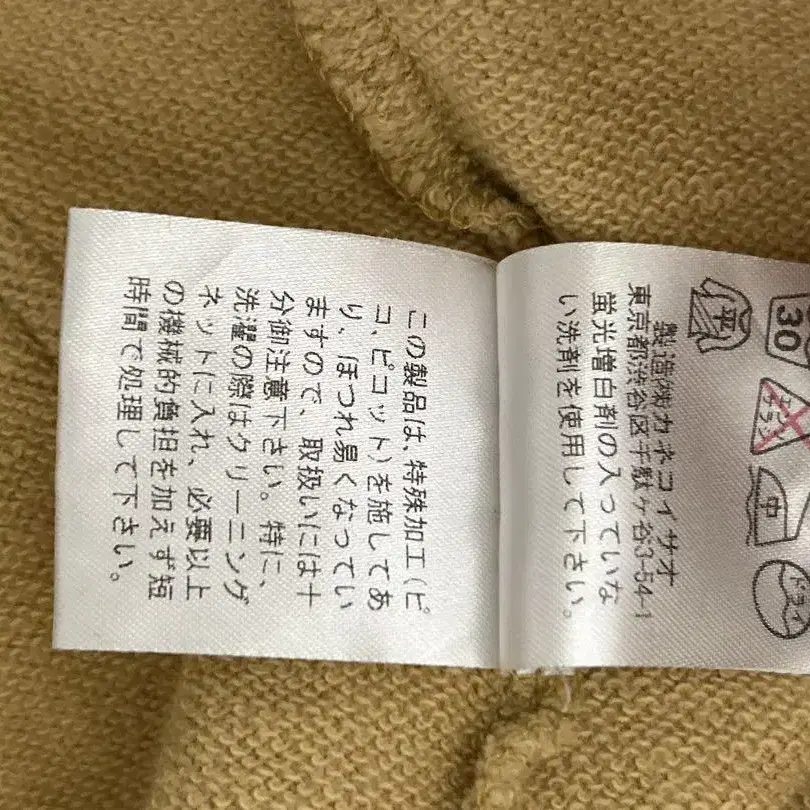 30
エンソ
サラシ
中
ドライ
平
製造㈱カネコイサオ
東京都渋谷区千駄ヶ谷3-54-1
蛍光増白剤の入っていな
い洗剤を使用して下さい。
この製品は、特殊加工(ピ
コ、ピコット)を施してあ
り、ほつれ易くなってい
ますので、取扱いには十
分御注意下さい。特に、
洗濯の際はクリーニング
ネットに入れ、必要以上
の機械的負担を加えず短
時間で処理して下さい。